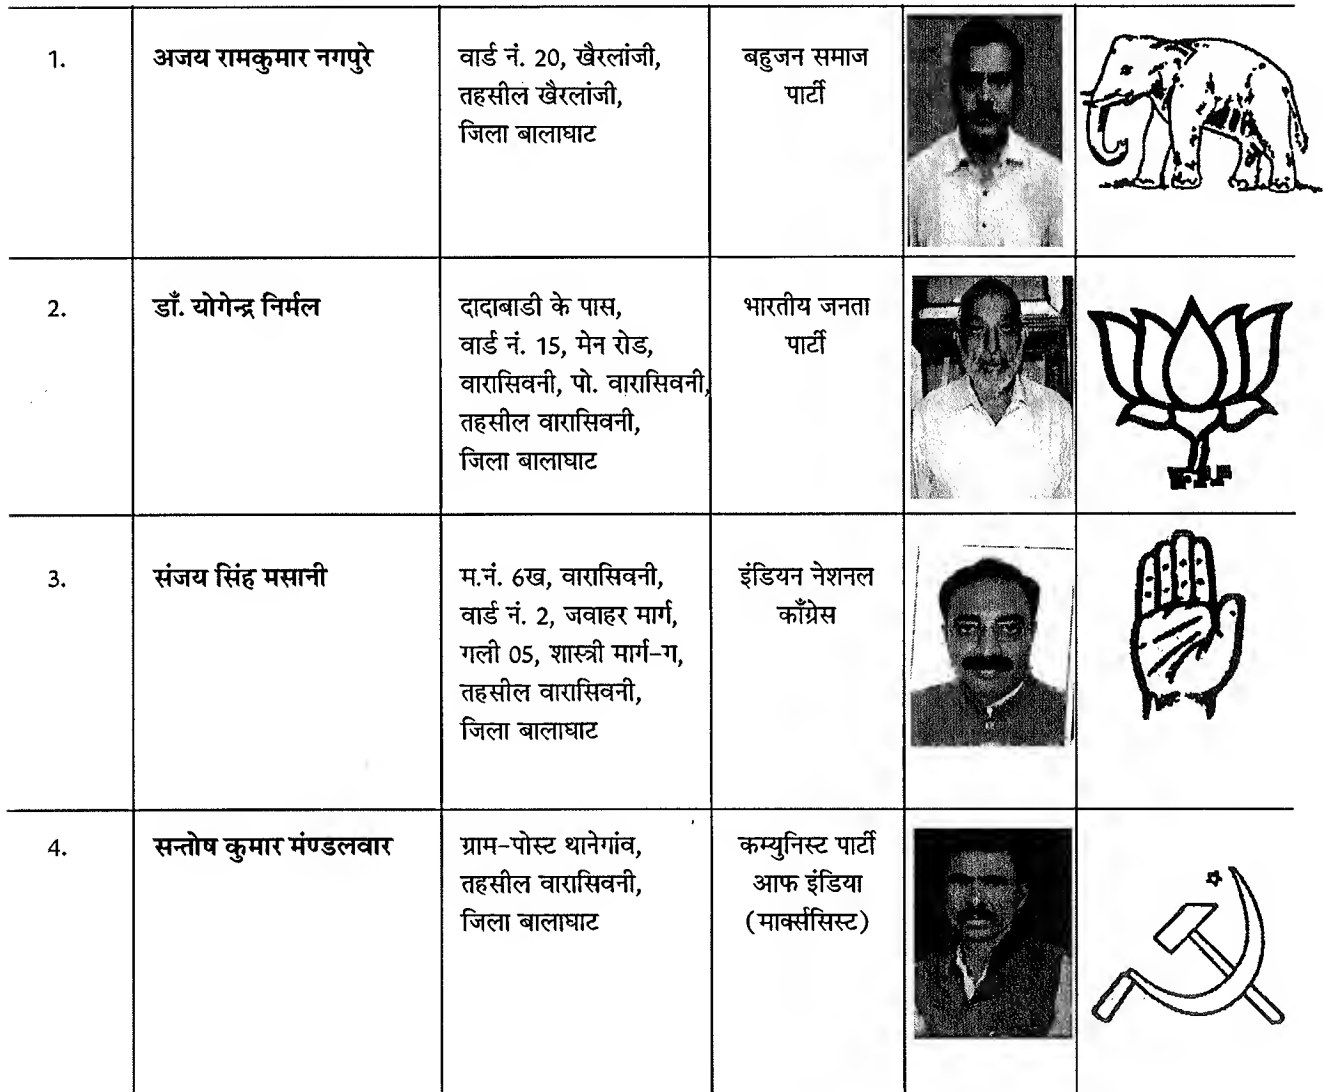 1.
अजय रामकुमार नगपुरे
वार्ड नं. 20, खैरलांजी,
तहसील खैरलांजी,
जिला बालाघाट
बहुजन समाज
पार्टी
2.
डॉ. योगेन्द्र निर्मल
दादाबाडी के पास,
वार्ड नं. 15, मेन रोड,
वारासिवनी, पो. वारासिवनी,
तहसील वारासिवनी,
जिला बालाघाट
भारतीय जनता
पार्टी
3.
संजय सिंह मसानी
म.नं. 6ख, वारासिवनी,
वार्ड नं. 2, जवाहर मार्ग,
गली 05, शास्त्री मार्ग-ग,
तहसील वारासिवनी,
जिला बालाघाट
इंडियन नेशनल
काँग्रेस
4.
सन्तोष कुमार मंण्डलवार
ग्राम-पोस्ट थानेगांव,
तहसील वारासिवनी,
जिला बालाघाट
कम्युनिस्ट पार्टी
आफ इंडिया
(मार्क्ससिस्ट)